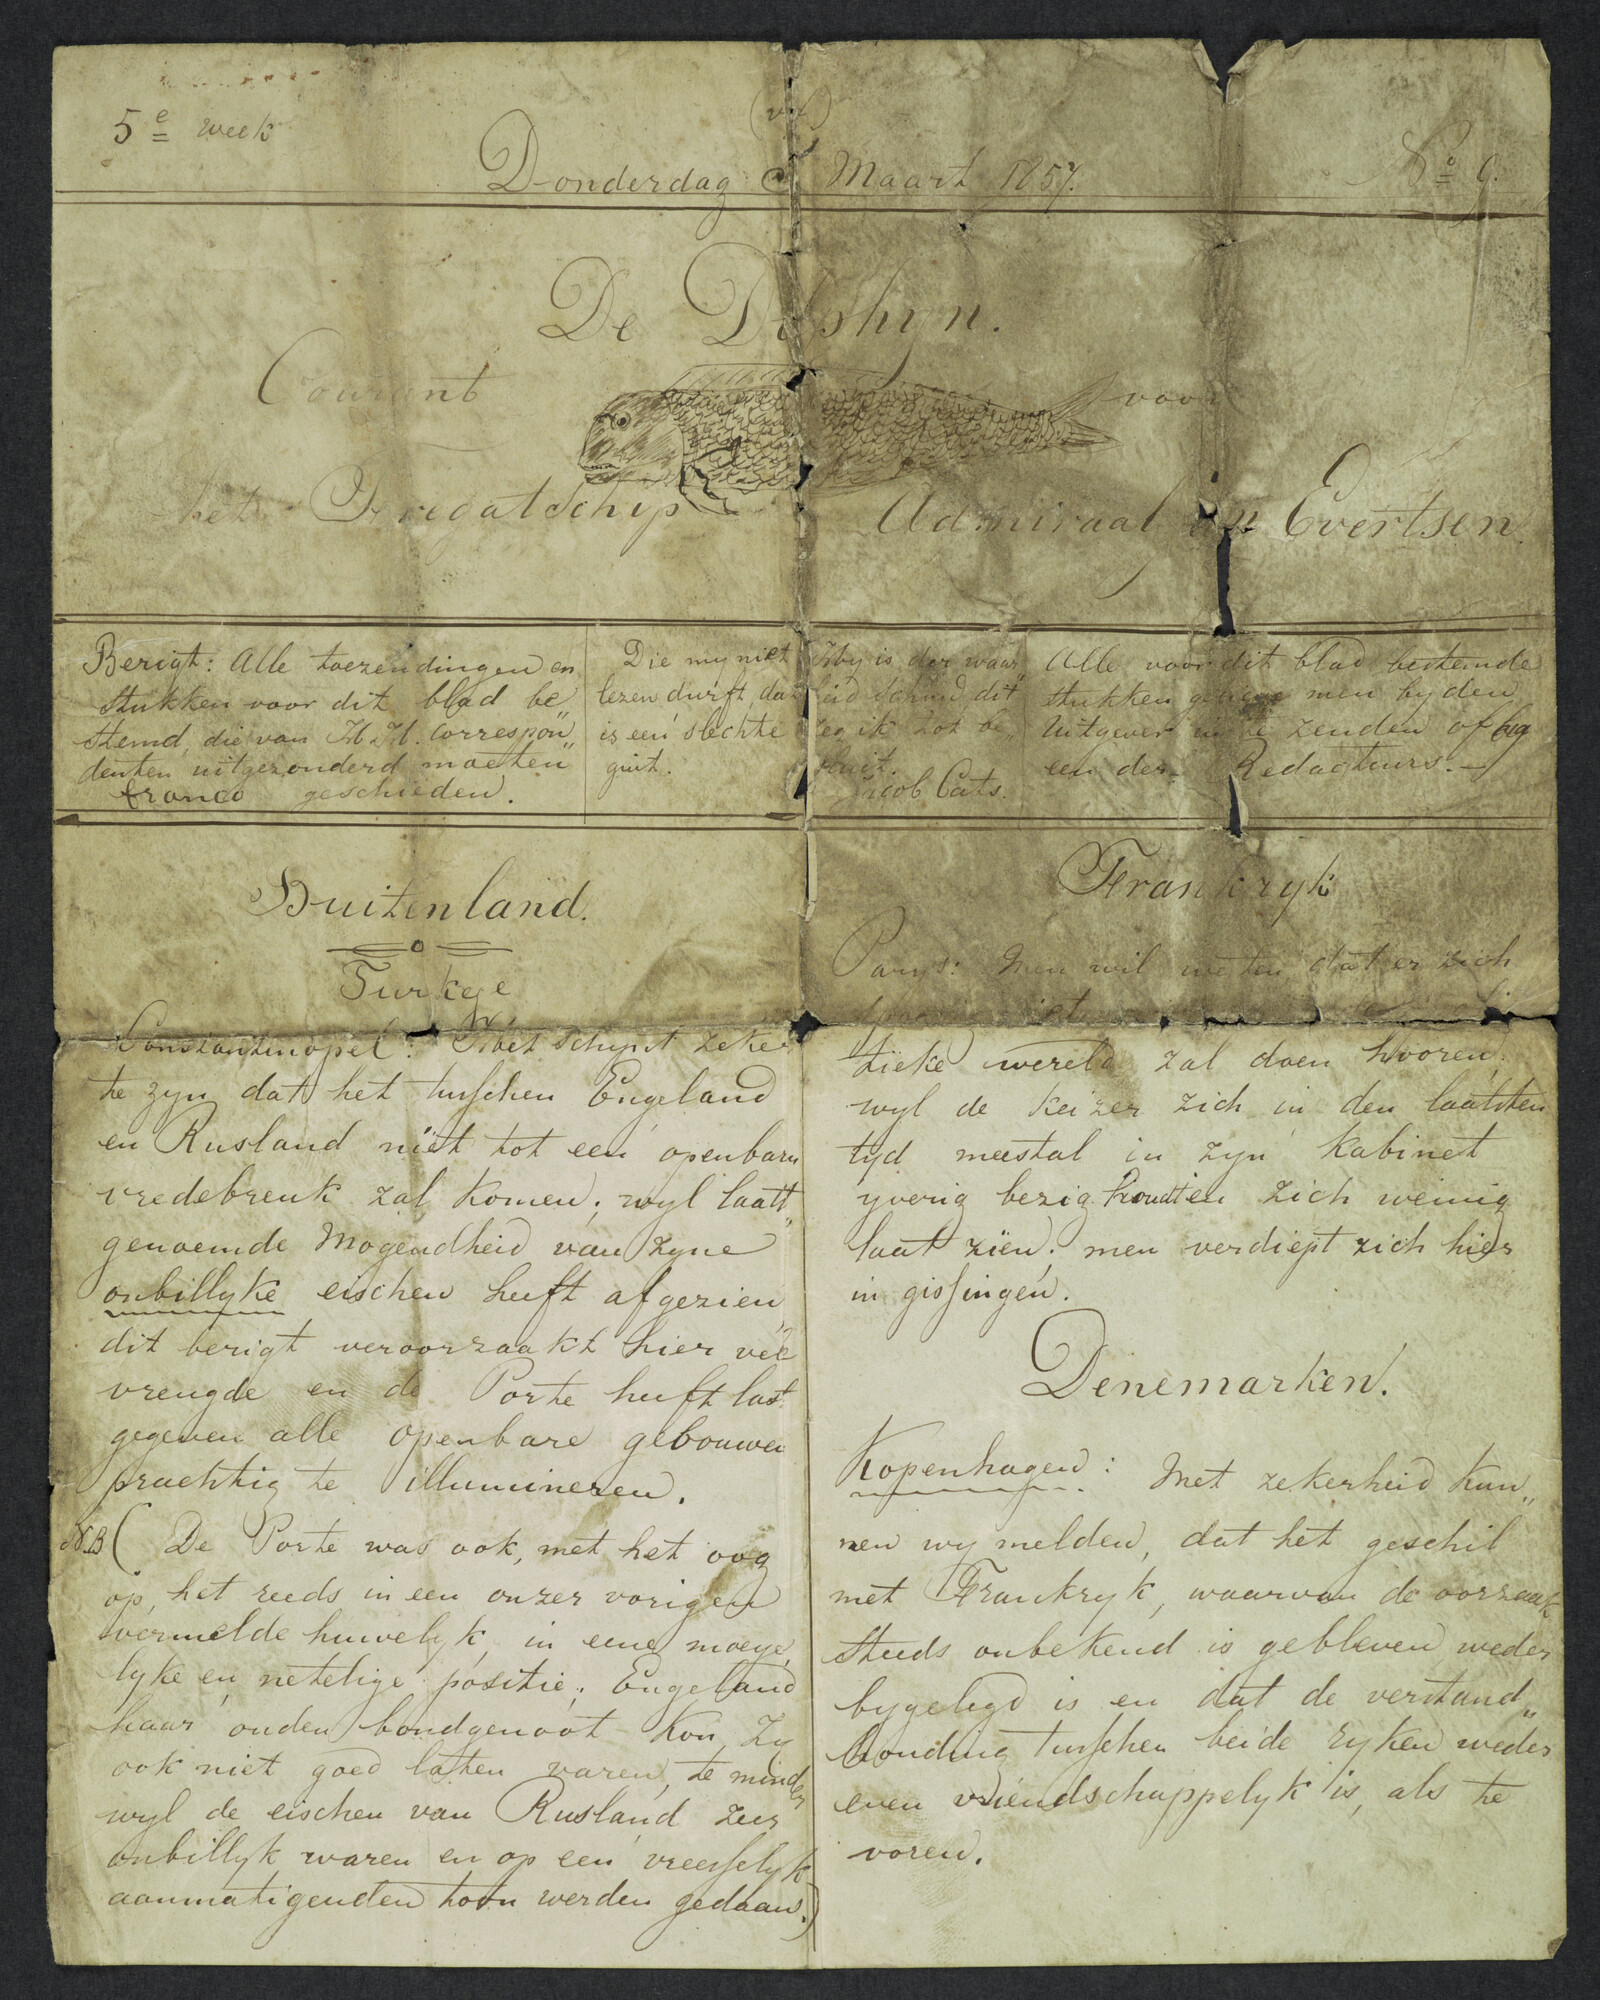 5e week
Donderdag Maart 1857.
No 9.
De Dolphyn.
Courant voor
het Fregatschip Admiraal van Evertsen.
Berigt: Alle toezendingen en
stukken voor dit blad be
stemd, die van H.H. Correspon„
denten uitgezonderd moeten
franco geschieden.
Die my niet
lezen durft, dat
is een slechte
guit.
Hy is der waar„
heid schuw dit
zeg ik tot be„
sluit.
Jacob Cats.
Alle voor dit blad bestemde
stukken gelieve men by den
Uitgever in te zenden of by
een der Redacteurs.—
Buitenland.
Turkye
Constantinopel: Het schynt zeker
te zyn dat het tusschen Engeland
en Rusland niet tot een openbare
vredebreuk zal komen; wyl laatst„
genoemde Mogendheid van zyne
onbillyke eischen heeft afgezien„
dit berigt veroorzaakt hier veel
vreugde en de Porte heeft last
gegeven alle openbare gebouwen
prachtig te illumineren.
N.B. ( De Porte was ook, met het oog
op, het reeds in een onzer vorigen
vermelde huwelyk, in eene moeye„
lyke en netelige positie; Engeland
haar ouden bondgenoot kon zy
ook niet goed laten varen, te minder
wyl de eischen van Rusland zeer
onbillyk waren en op een vreesselyk
aanmatigenden toon werden gedaan.)
Frankryk
Parys: Men wil weten dat er zich
tieke wereld zal doen hooren;
wyl de keizer zich in den laatsten
tyd meestal in zyn kabinet
yverig bezig houdt en zich weinig
laat zien; men verdiept zich hier
in gissingen.
Denemarken.
Kopenhagen: Met zekerheid kun„
nen wy melden, dat het geschil
met Frankryk, waarvan de oorzaak
steeds onbekend is gebleven weder
bygelegd is en dat de verstand„
houding tusschen beide ryken weder
even vriendschappelyk is, als te
voren.